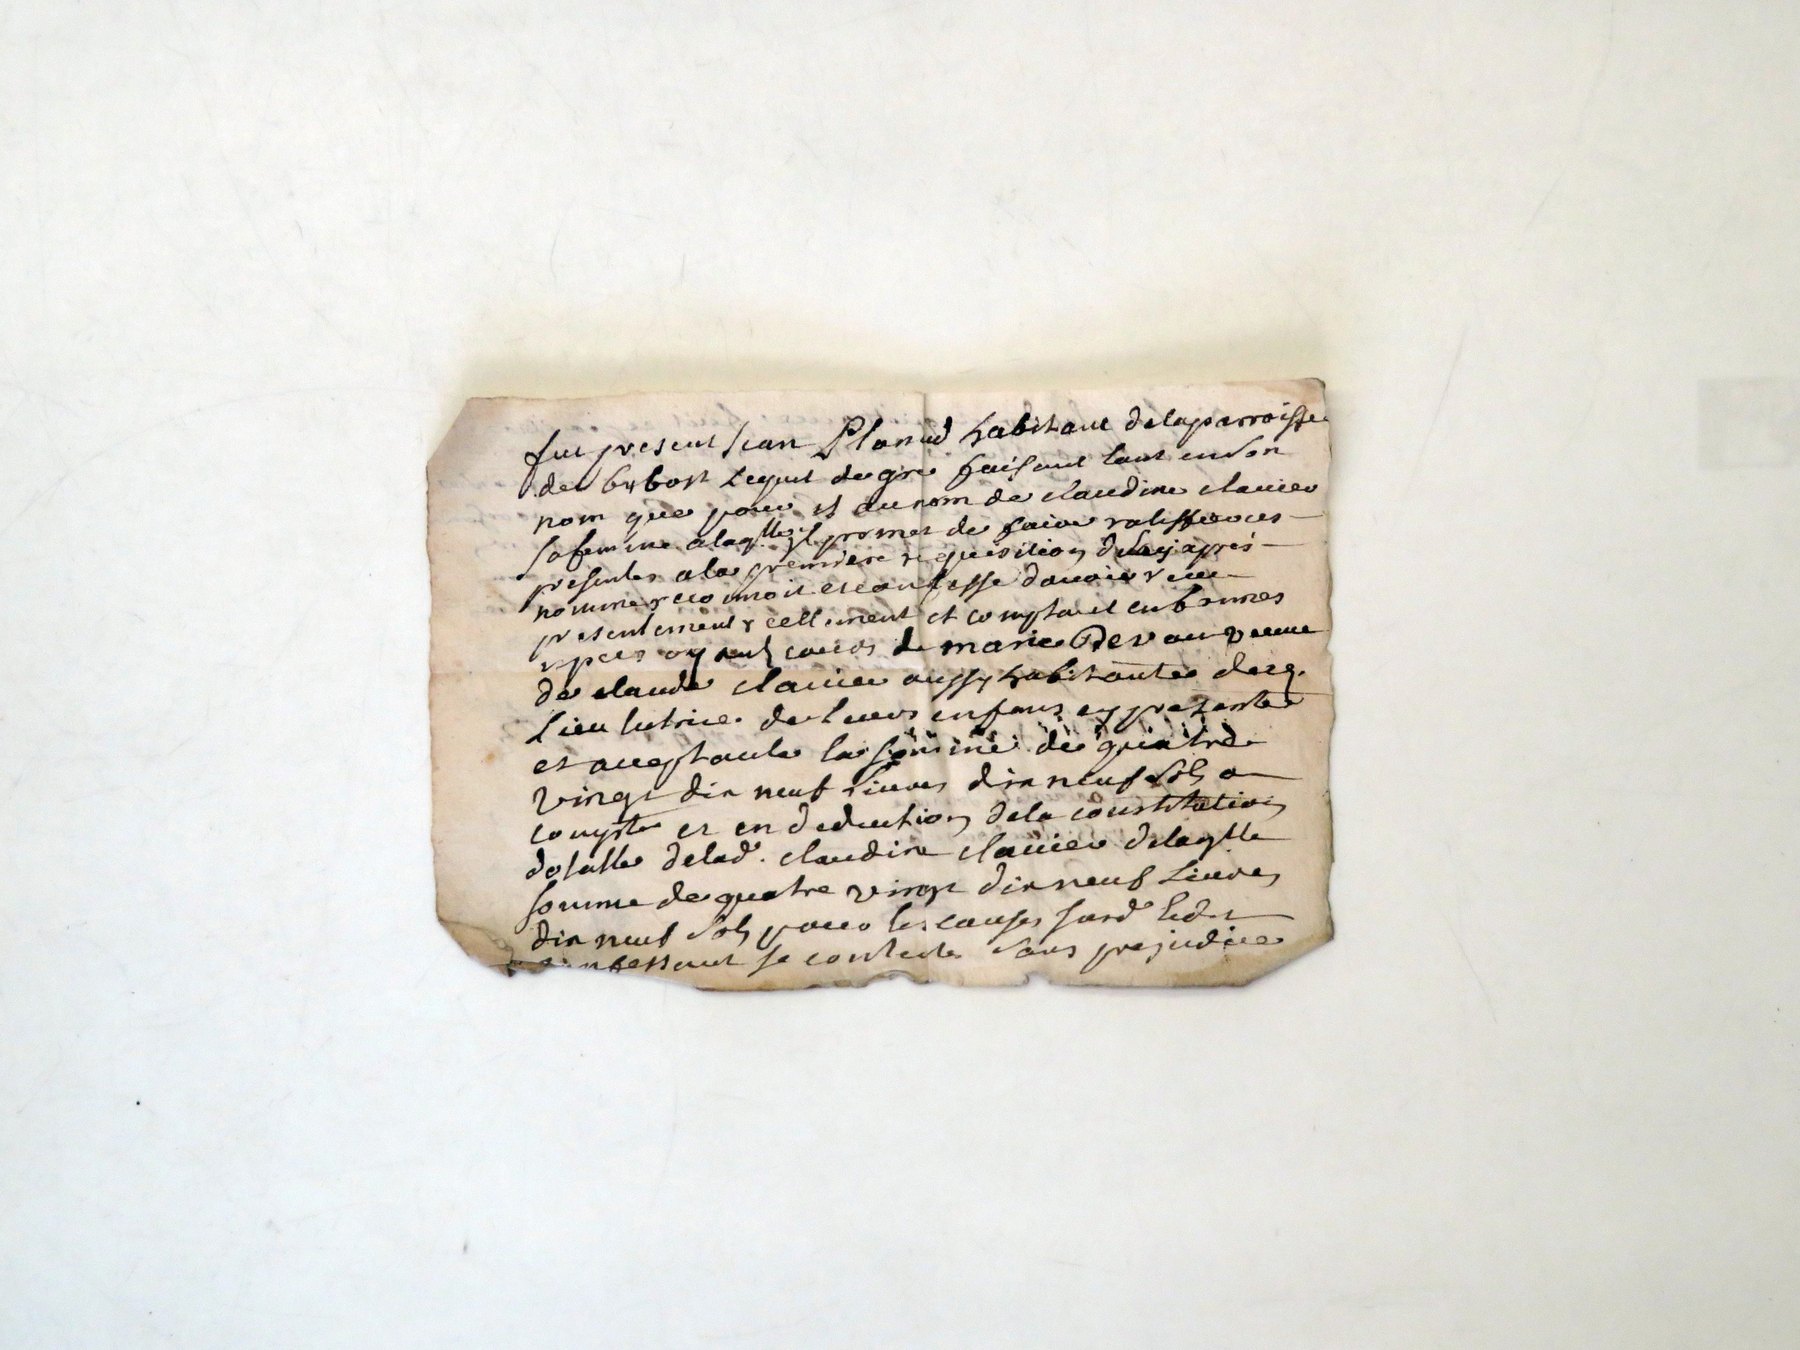 fut present Jean Planud habitant delaparroisse
de bybost Lequel de gré faisant tant enson
nom que pour et au nom de claudine clavier
safemme alaqlle il promet de faire ratiffier ces
presentes ala premiere requisition delacy apres
nommé recconnoit et confesse davoir receu
presentement reellement et comptant en bonnes
espces ayant cours de marie veuve
de claude clavier aussy habitante dud.
Lieu tutrice de Leurs enfans cy presente
et acceptante la somme de quatre
vingt dix neuf Livres dix neuf sols a
compte et en deduction dela constitution
dotalle delad. claudine clavier delaqlle
somme de quatre vingt dix neuf Livres
dix neuf sols pour les causes susd. Led.
confessant se contente sans prejudice